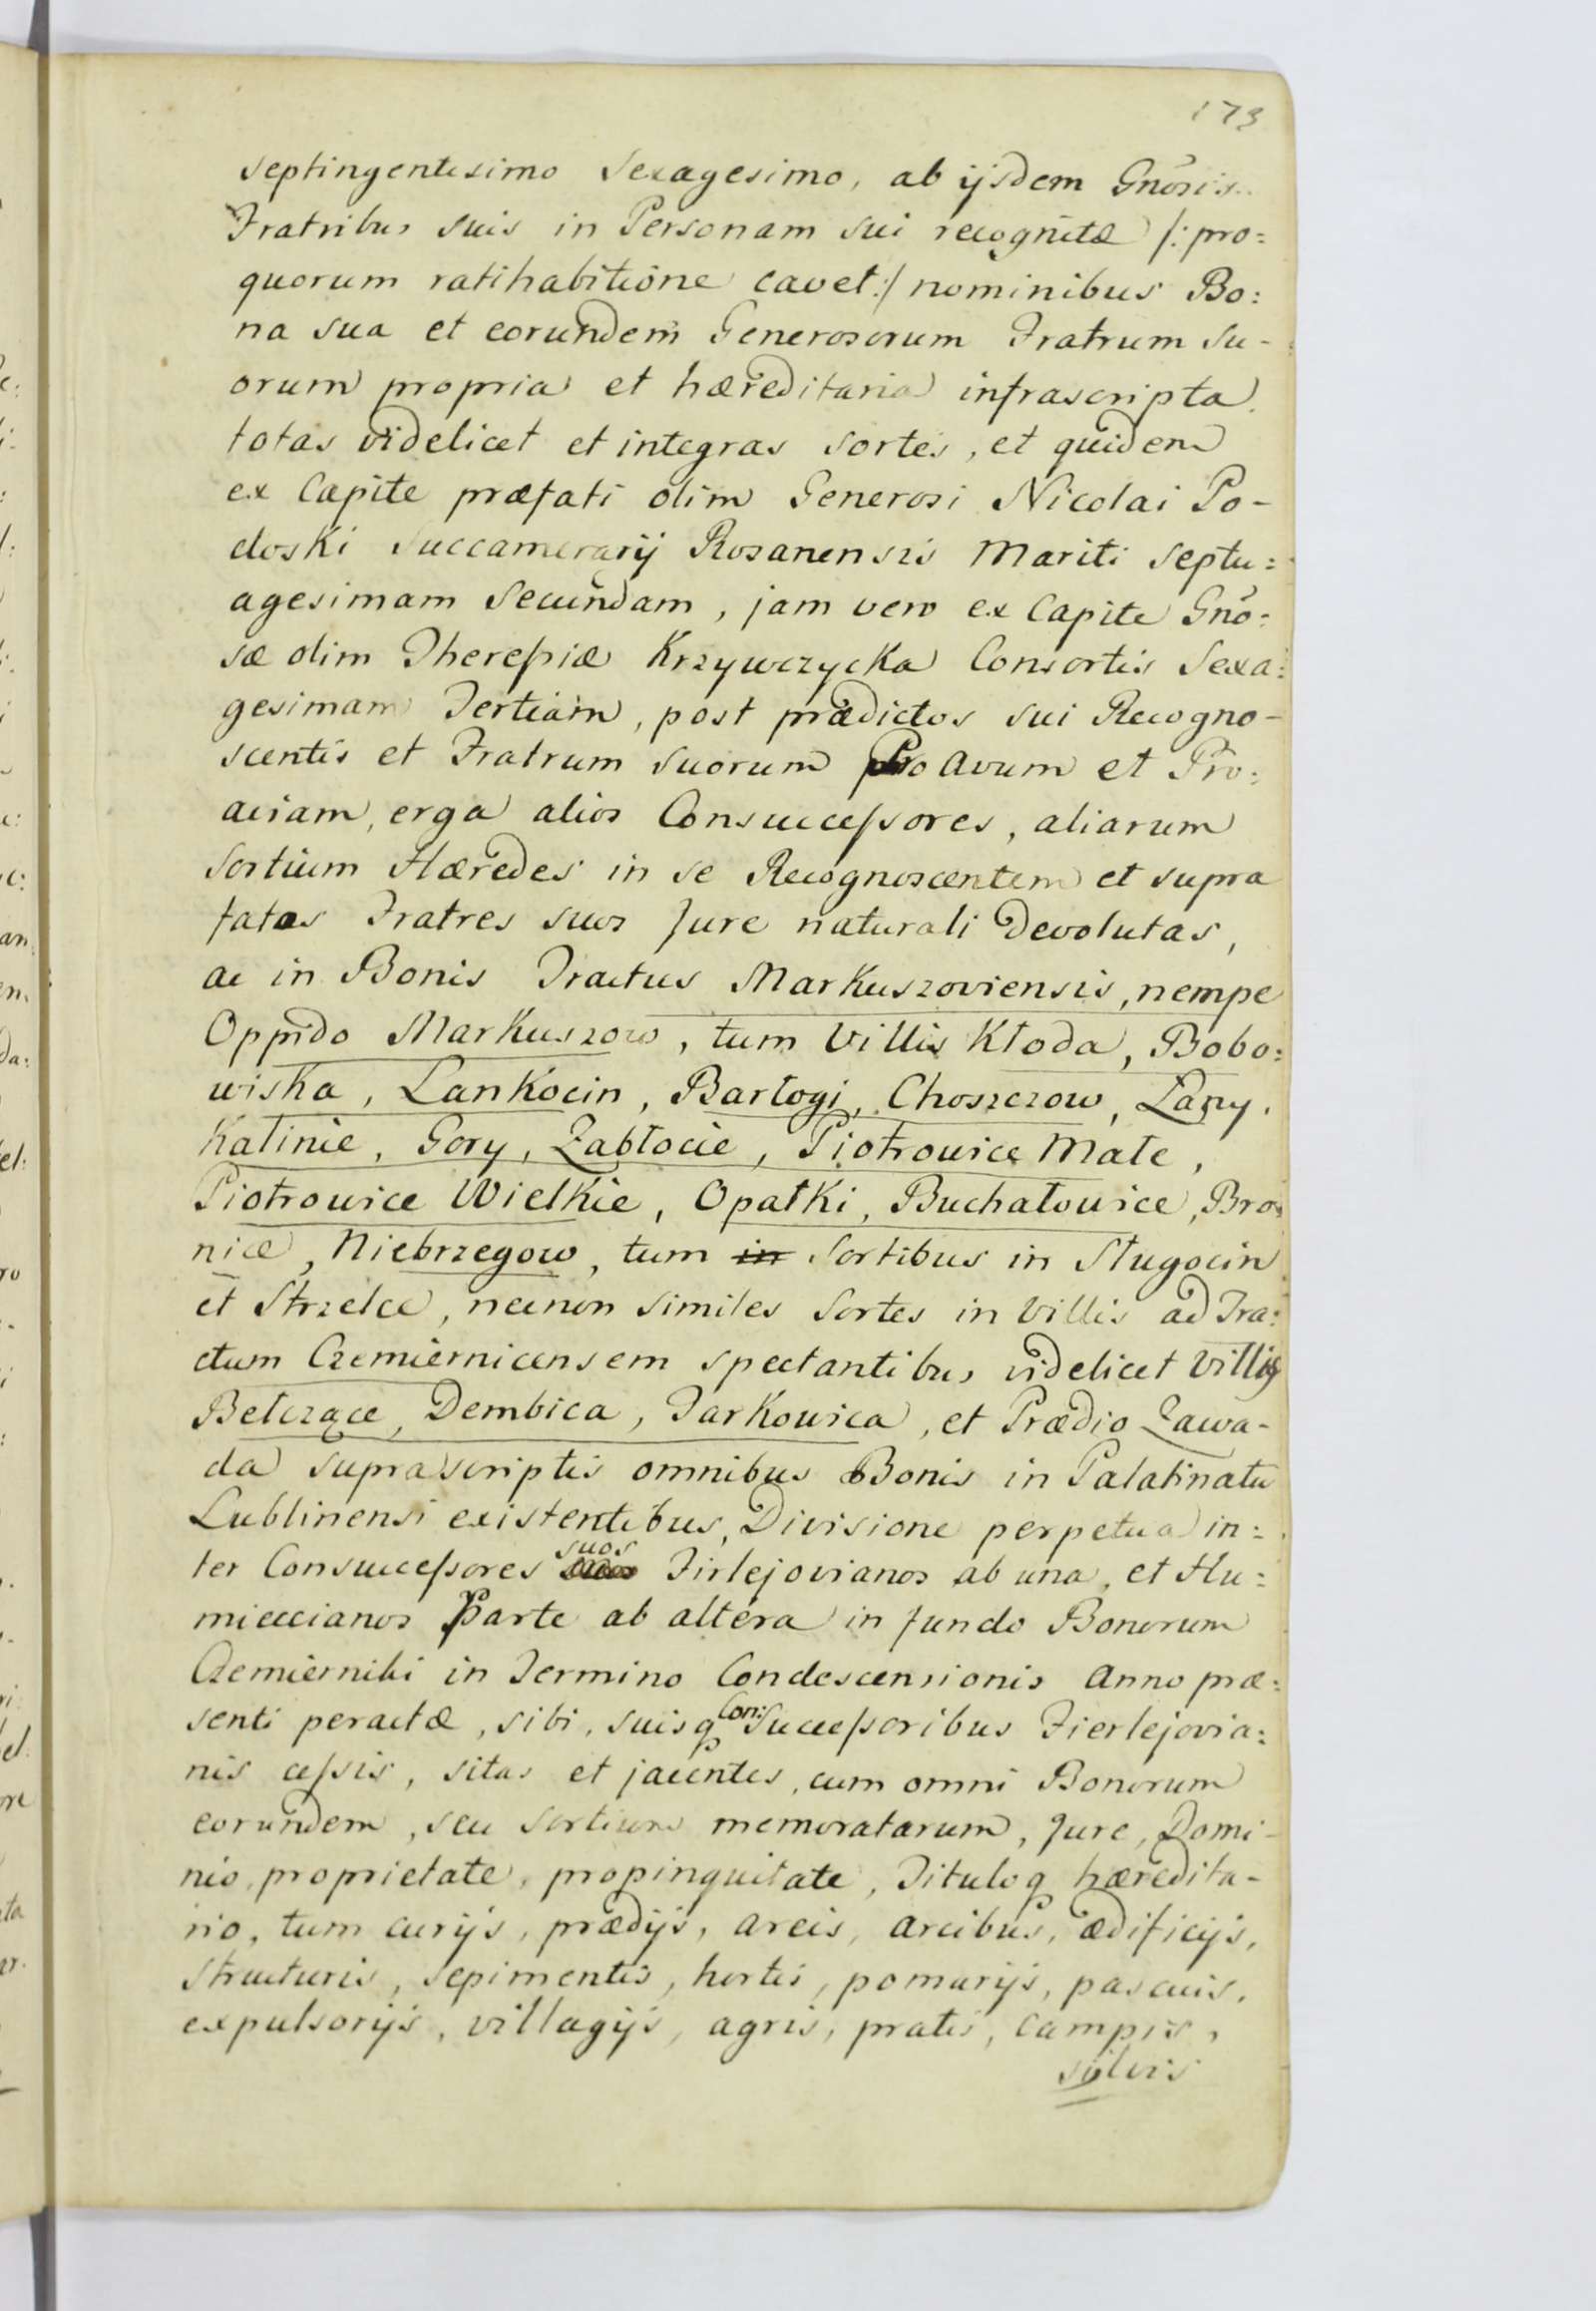 173
septingentesimo Sexagesimo, ab ijsdem Gnõsis
Fratribus suis in Personam sui recognitæ /: pro=
quorum ratihabitione cavet:/ nominibus Bo:
na sua et eorundem Generosorum Fratrum Su-
orum propria et hæreditaria infrascripta
totas videlicet et integras sortes, et quidem
ex Capite præfati olim Generosi Nicolai Po-
doski Succamerarij Rosanensis Mariti Septu=
agesimam Secundam, jam vero ex Capite Gnõ=
sæ olim Theresiæ Krzywczycka Consortis Sexa=
gesimam Tertiam, post prædictos sui Recogno-
scentis et Fratrum suorum Pro Avum et Pro:
aviam, erga alios Consuccessores, aliarum
Sortium Hæredes in se Recognoscentem et supra
fatos Fratres suos Jure naturali devolutas,
ac in Bonis Tractus Markuszoviensis, nempe
Oppido Markuszow, tum Villis Kłoda, Bobo:
wiska, Lankocin, Barłogi, Choszczow, Łany,
Kalinie, Gory, Zabłocie, Piotrowice Małe,
Piotrowice Wielkie, Opatki, Buchałowice, Bro=
nice, Niebrzegow, tum in Sortibus in Sługocin
et Strzelce, necnon similes Sortes in Villis ad Tra:
ctum Czemiernicensem spectantibus videlicet Villis
Bełczące, Dembica, Tarkowica, et Prædio Zawa-
da suprascriptis omnibus Bonis in Palatinatu
Lublinensi existentibus, Divisione perpetua in=
ter Consuccessores suos Firlejovianos ab una, et Hu=
mieccianos Parte ab altera in fundo Bonorum
Czemierniki in Termino Condescensionis Anno præ=
senti peractæ, sibi, suisq Con: Successoribus Fierlejovia=
nis cessis, sitas et jacentes, cum omni Bonorum
eorundem, seu Sortium memoratarum, Jure, Domi-
nio, proprietate, propinquitate, Tituloq hæredita-
rio, tum curijs, prædijs, areis, arcibus, ædificijs,
structuris, sepimentis, hortis, pomarijs, pascuis,
expulsorijs, villagijs, agris, pratis, campis,
sylvis